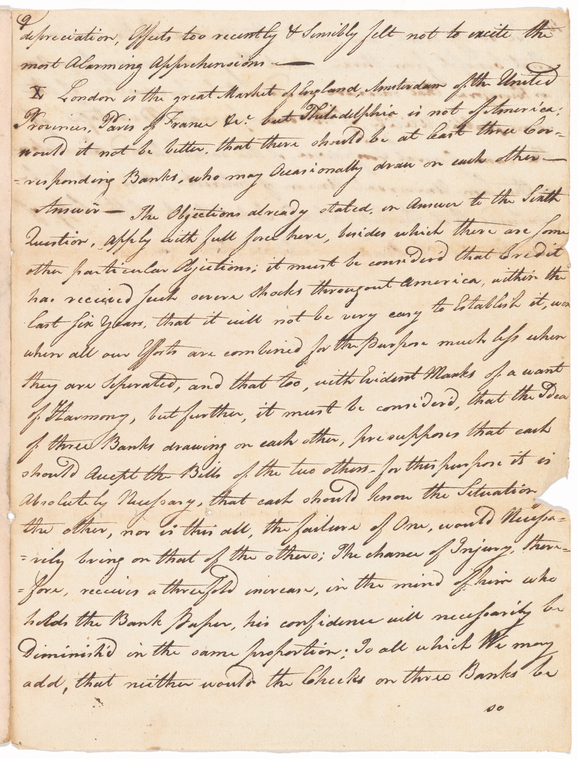 9
depreciation, Effects too recently & Sensibly felt not to excite the
most Alarming Apprehensions —
X London is the great Market of England, Amsterdam of the United
Provinces, Paris of France &c. but Philadelphia is not of America;
would it not be better, that there should be at least three Cor=
=responding Banks, who may Occasionally draw on each other —
Answer — The Objections already stated, in Answer to the Sixth
Question, apply with full force here, besides which there are some
other particular Objections; it must be considerd that Credit
has received such severe Shocks throughout America, within the
last six Years, that it will not be very easy to Establish it,
when all our Efforts are combined for the Purpose much less when
they are seperated, and that too, with Evident Marks of a want
of Harmony, but further, it must be considerd, that the Idea
of three Banks drawing on each other, presupposes that each
should Accept the Bills of the two others - for this purpose it is
Absolutely Necessary, that each should know the Situation
the other, nor is this all, the failure of One, would Necessa=
=rily bring on that of the others; The chance of Injury, there=
=fore, receives a threefold increase, in the mind of him who
holds the Bank Paper, his confidence will necessarily be
Diminish'd in the same proportion; To all which We may
add, that neither would the Checks on three Banks be
so